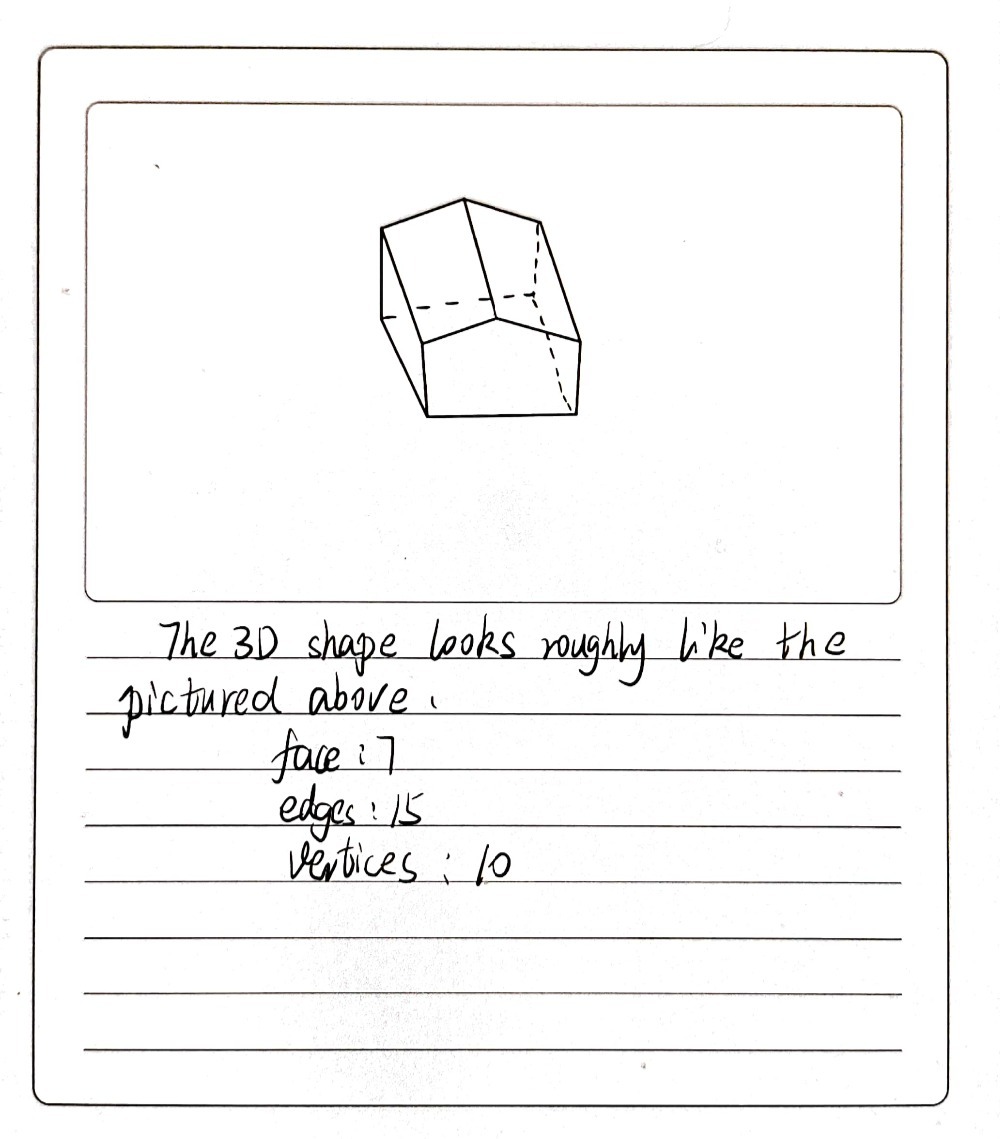 The 3D shape looks roughly like the
pictured above.
face : 7
edges : 15
vertices : 10